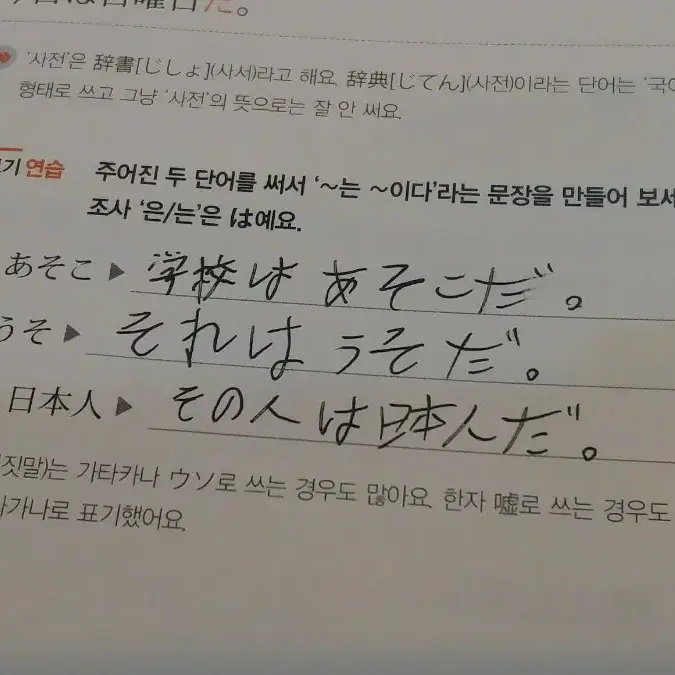 今日は日曜日だ。
'사전'은 辞書[じしょ](사서)라고 해요. 辞典[じてん](사전)이라는 단어는 '국어
형태로 쓰고 그냥 '사전'의 뜻으로는 잘 안 써요.
기 연습 주어진 두 단어를 써서 '~는 ~이다'라는 문장을 만들어 보세
조사 '은/는'은 は예요.
あそこ ▶ 学校は あそこだ。
うそ ▶ それは うそだ。
日本人 ▶ その人は日本人だ。
짓말)는 가타카나 ウソ로 쓰는 경우도 많아요. 한자 嘘로 쓰는 경우도
가나로 표기했어요.